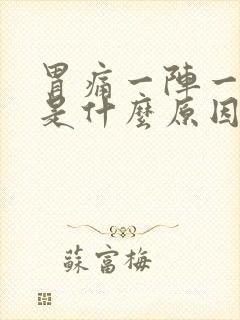 胃痛一陣一
是什麼原因
蘇富梅